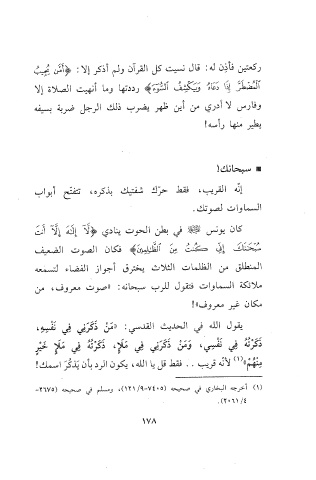 ركعتين فأذِن له: قال نسيت كل القرآن ولم أذكر إلا: ﴿أَمَّن يُجِيبُ
ٱلْمُضْطَرَّ إِذَا دَعَاهُ وَيَكْشِفُ ٱلسُّوٓءَ﴾ رددتها وما أنهيت الصلاة إلا
وفارس لا أدري من أين ظهر يضرب ذلك الرجل ضربة بسيفه
يطير منها رأسه!
▪ سبحانك!
إنّه القريب، فقط حرّك شفتيك بذكره، تتفتّح أبواب
السماوات لصوتك.
كان يونس ﷺ في بطن الحوت ينادي ﴿لَّآ إِلَٰهَ إِلَّآ أَنتَ
سُبْحَٰنَكَ إِنِّي كُنتُ مِنَ ٱلظَّٰلِمِينَ﴾ فكان الصوت الضعيف
المنطلق من الظلمات الثلاث يخترق أجواز الفضاء لتسمعه
ملائكة السماوات فتقول للرب سبحانه: «صوت معروف، من
مكان غير معروف»!
يقول الله في الحديث القدسي: «مَنْ ذَكَرَنِي فِي نَفْسِهِ،
ذَكَرْتُهُ فِي نَفْسِي، وَمَنْ ذَكَرَنِي فِي مَلَإٍ، ذَكَرْتُهُ فِي مَلَإٍ خَيْرٍ
مِنْهُمْ»(١) لأنه قريب .. فقط قل يا الله، يكون الرد بأن يَذكُرَ اسمك!
(١) أخرجه البخاري في صحيحه (٧٤٠٥-١٢١/٩)، ومسلم في صحيحه (٢٦٧٥-
٢٠٦١/٤).
١٧٨